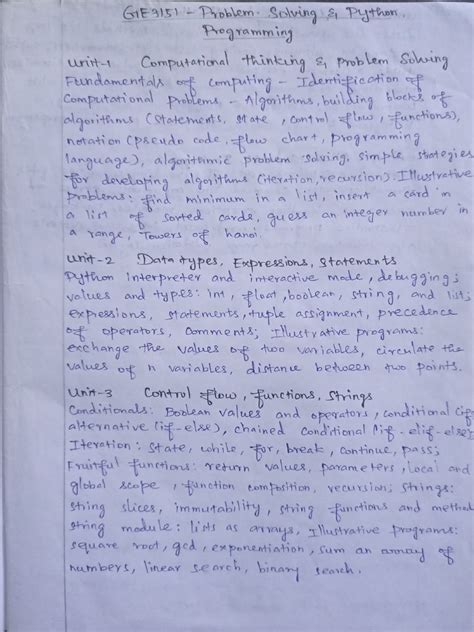 GE3151 - Problem Solving & Python
Programming
Unit-1 Computational thinking & problem Solving
Fundamentals of computing - Identification of
Computational Problems - Algorithms, building blocks of
algorithms (Statements, state, control flow, functions),
notation (pseudo code, flow chart, programming
language), algorithmic problem solving, simple strategies
for developing algorithms (iteration, recursion). Illustrative
problems: find minimum in a list, insert a card in
a list of sorted cards, guess an integer number in
a range, Towers of hanoi.
Unit-2 Data types, Expressions, Statements
Python interpreter and interactive mode, debugging;
values and types: int, float, boolean, string, and list;
expressions, statements, tuple assignment, precedence
of operators, comments; Illustrative programs:
exchange the values of two variables, circulate the
values of n variables, distance between two points.
Unit-3 Control flow, functions, Strings
Conditionals: Boolean values and operators, conditional (if)
alternative (if-else), chained conditional (if-elif-else)
Iteration: state, while, for, break, continue, pass;
Fruitful functions: return values, parameters, local and
global scope, function composition, recursion; strings:
string slices, immutability, string functions and method
string module: lists as arrays, Illustrative programs:
square root, gcd, exponentiation, sum an array of
numbers, linear search, binary search.